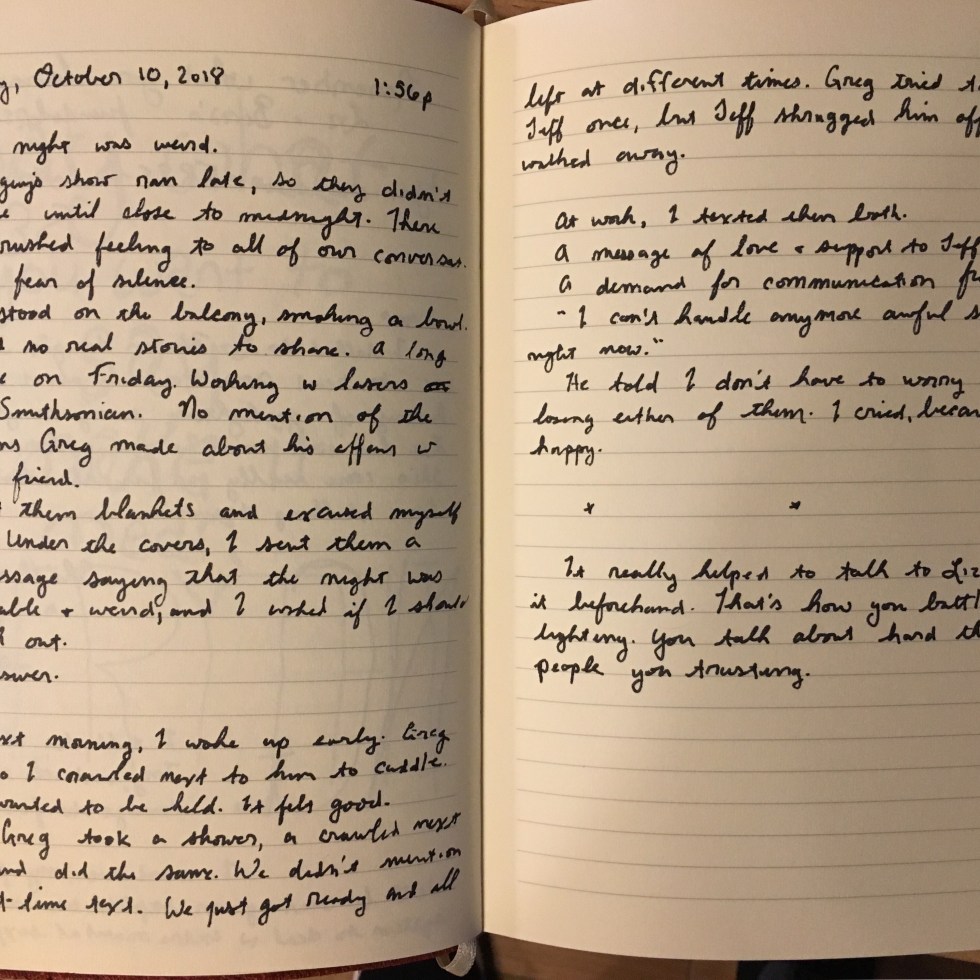 October 10, 2018 1:56p
night was weird.
show ran late, so they didn't
until close to midnight. There
rushed feeling to all of our conversas.
fear of silence.
stood on the balcony, smoking a bowl.
no real stories to share. A long
on Friday. Working w lasers
Smithsonian. No mention of the
Greg made about his efforts w
friend.
them blankets and excused myself
Under the covers, I sent them a
ssage saying that the night was
able + weird, and I asked if I should
out.
swer.
xt morning, I woke up early. Greg
I crawled next to him to cuddle.
wanted to be held. It felt good.
Greg took a shower, a crawled next
nd did the same. We didn't mention
t-time text. We just got ready and all
left at different times. Greg tried
Jeff once, but Jeff shrugged him off
walked away.
At work, I texted them both.
A message of love + support to Jeff
A demand for communication
"I can't handle anymore awful
right now."
He told I don't have to worry
losing either of them. I cried, becau
happy.
* *
It really helped to talk to Liz
it beforehand. That's how you battl
lighting. You talk about hard th
people you trusting.